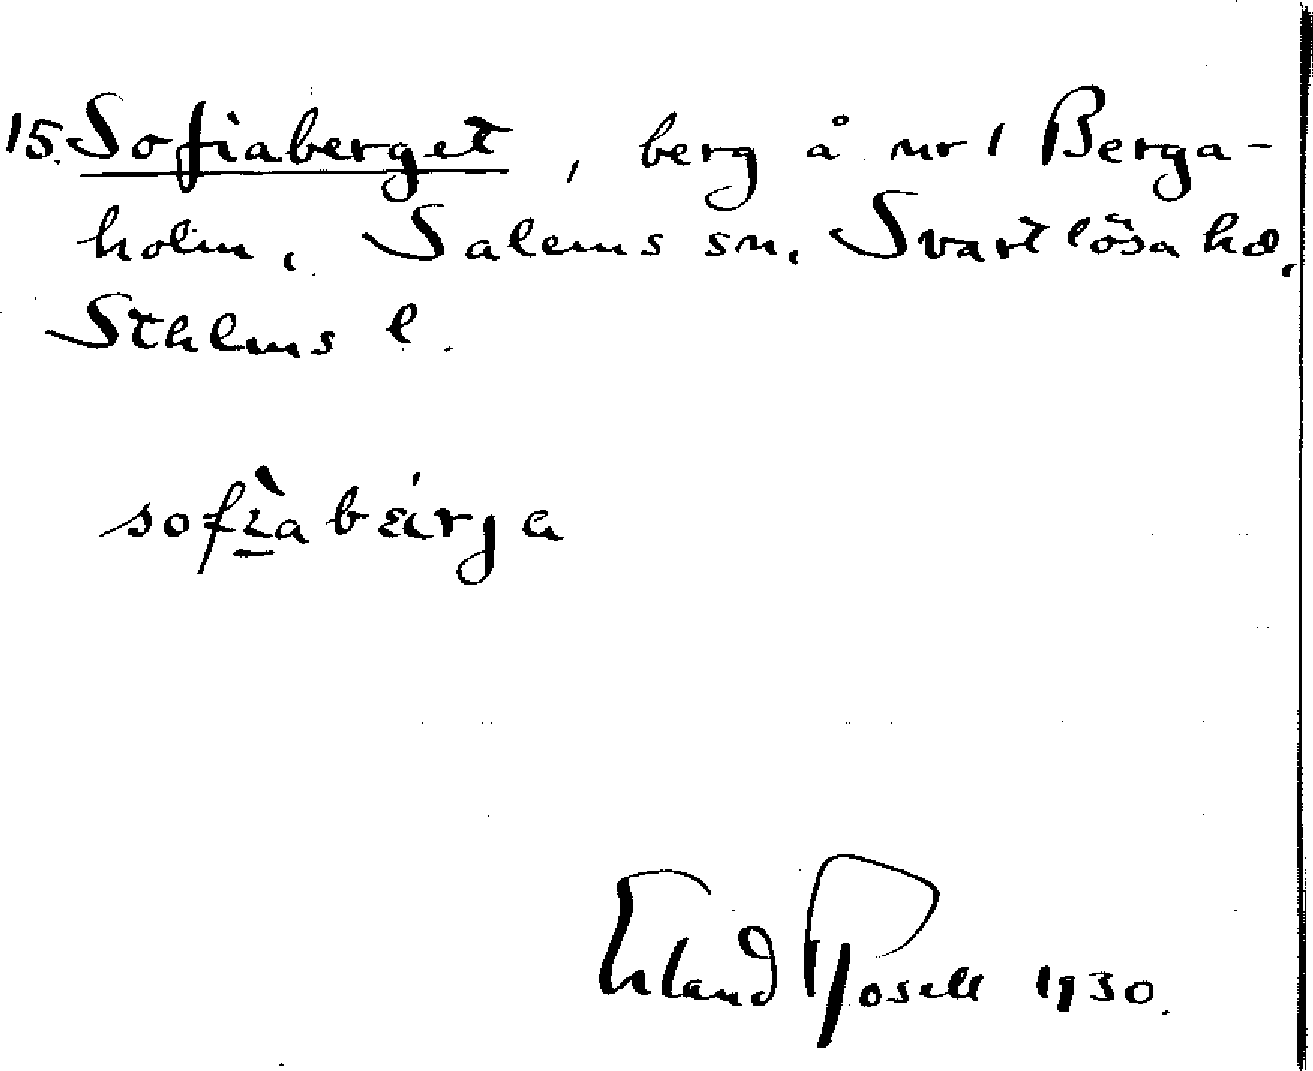 15. Sofiaberget, berg å nr 1 Berga-
holm, Salems sn, Svartlösa hd,
Sthlms l.
sofɩ̀abɛárja
Erland Rosell 1930.